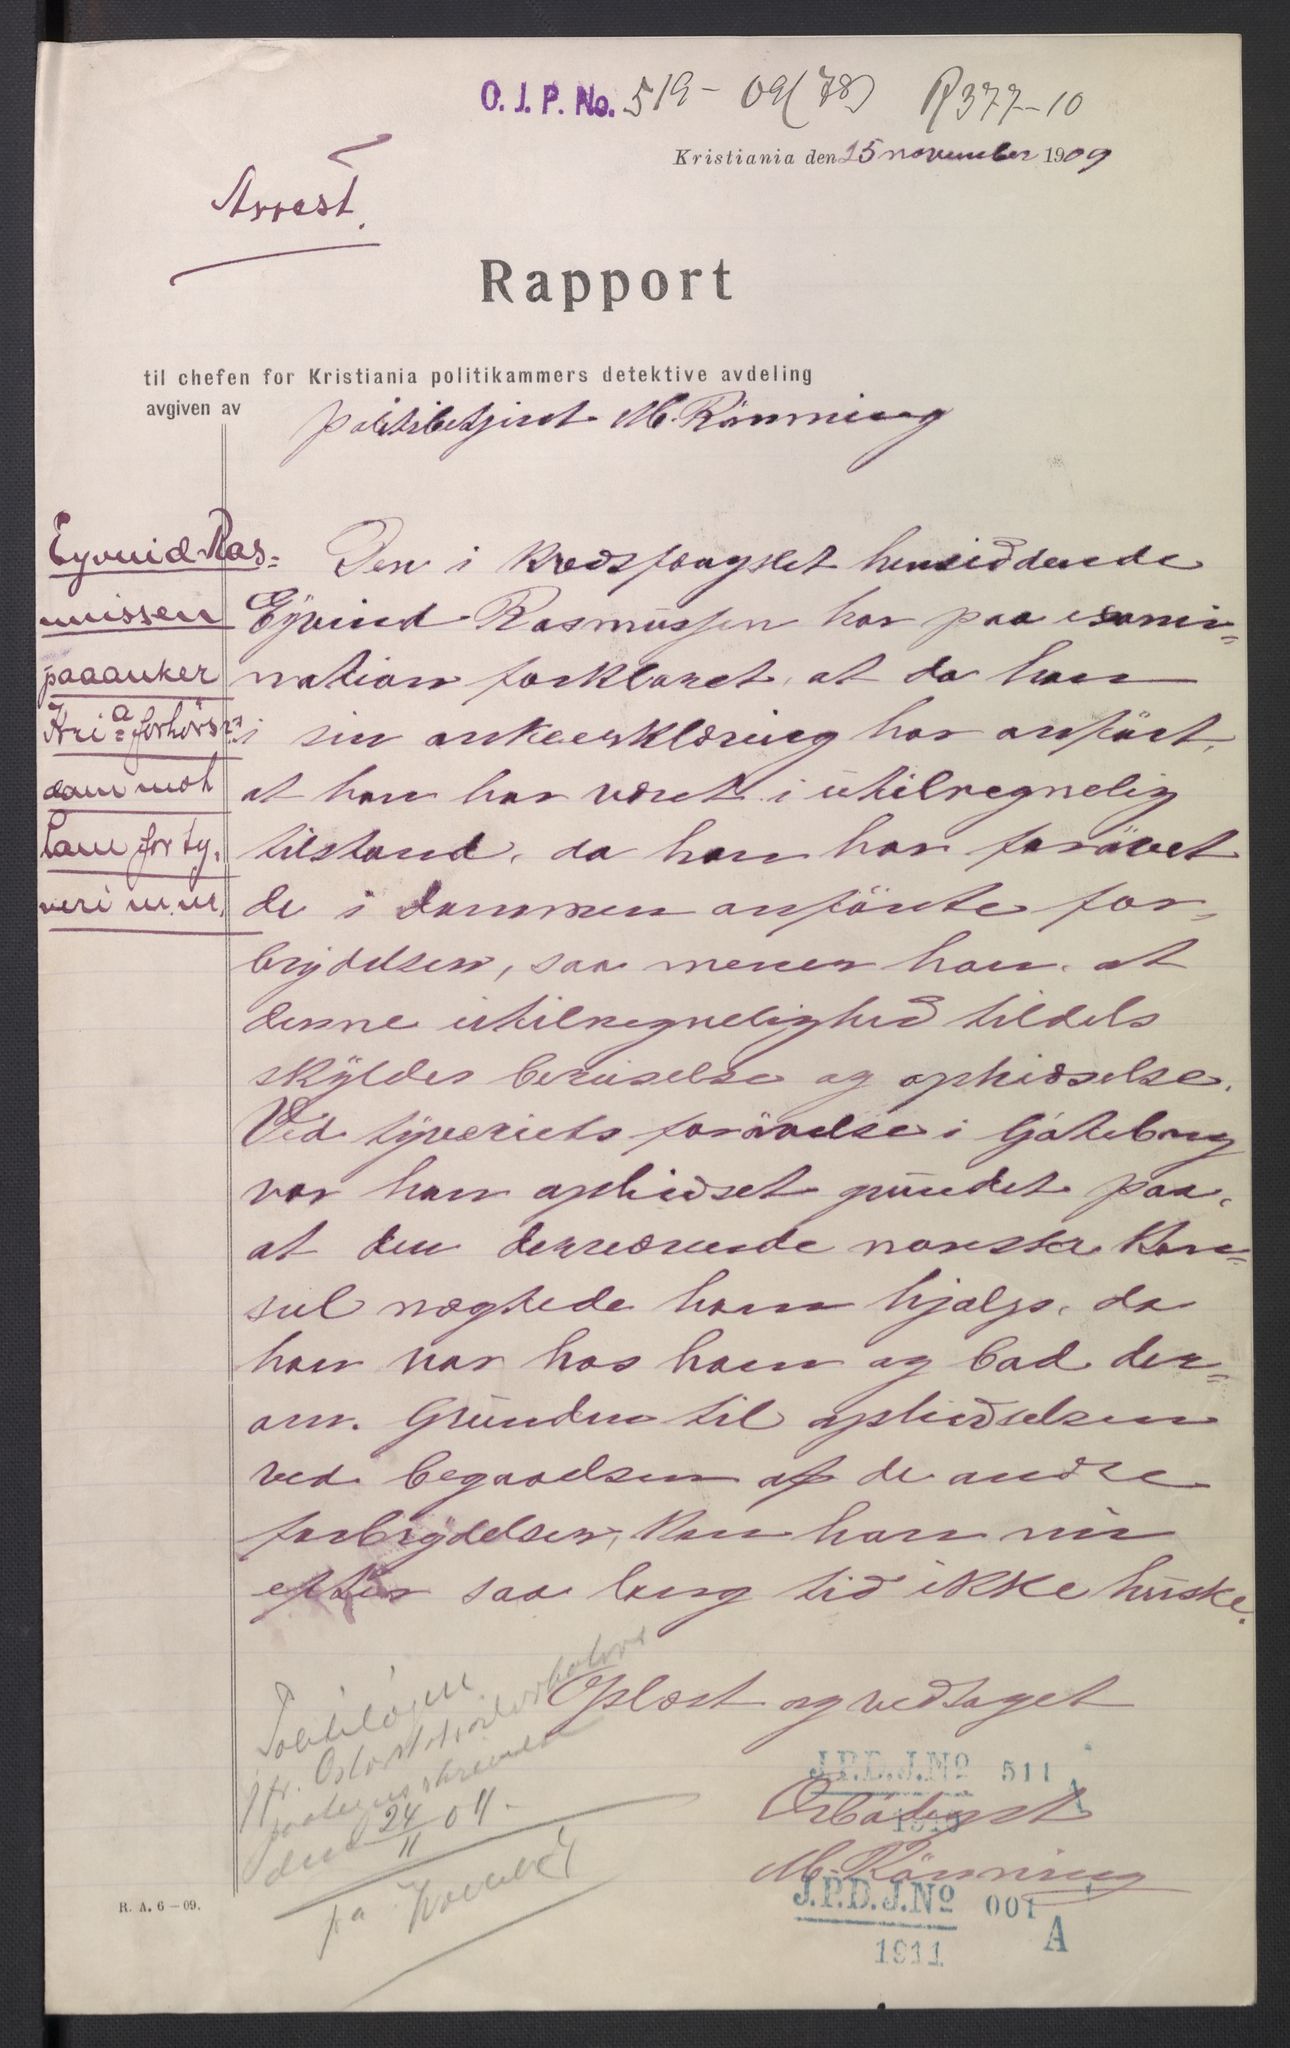 O. J. P. No. 519 - 09 (78) R 377-10
Kristiania den 25 november 1909
Arrest.
Rapport
til chefen for Kristiania politikammers detektive avdeling
avgiven av politibetjent M. Rönning
Eyvind Ras=
mussen
paaanker
Kria forhørs=
dom mot
ham for ty.
veri m.m.
Den i Kredsfængslet hensiddende
Eyvind Rasmussen har paa exami=
nation forklaret, at da han
i sin ankeerklæring har anført,
at han har været i utilregnelig
tilstand, da han har forøvet
de i dommen anførte for=
brydelser, saa mener han, at
denne utilregnelighed tildels
skyldes beruselse og ophidselse.
Ved tyveriets forøvelse i Gøteborg
var han ophidset grundet paa,
at den derværende norske Kon=
sul nægtede ham hjælp, da
han var hos ham og bad der=
om. Grunden til ophidselsen
ved begaaelsen af de andre
forbrydelser, kan han nu
efter saa lang tid ikke huske.
Oplæst og vedtaget
Ærbødigst
M. Rönning
J.P.D.J.No 511 A
1910
J.P.D.J.No 001 A
1911
den 24/11 09.
R. A. 6 — 09.